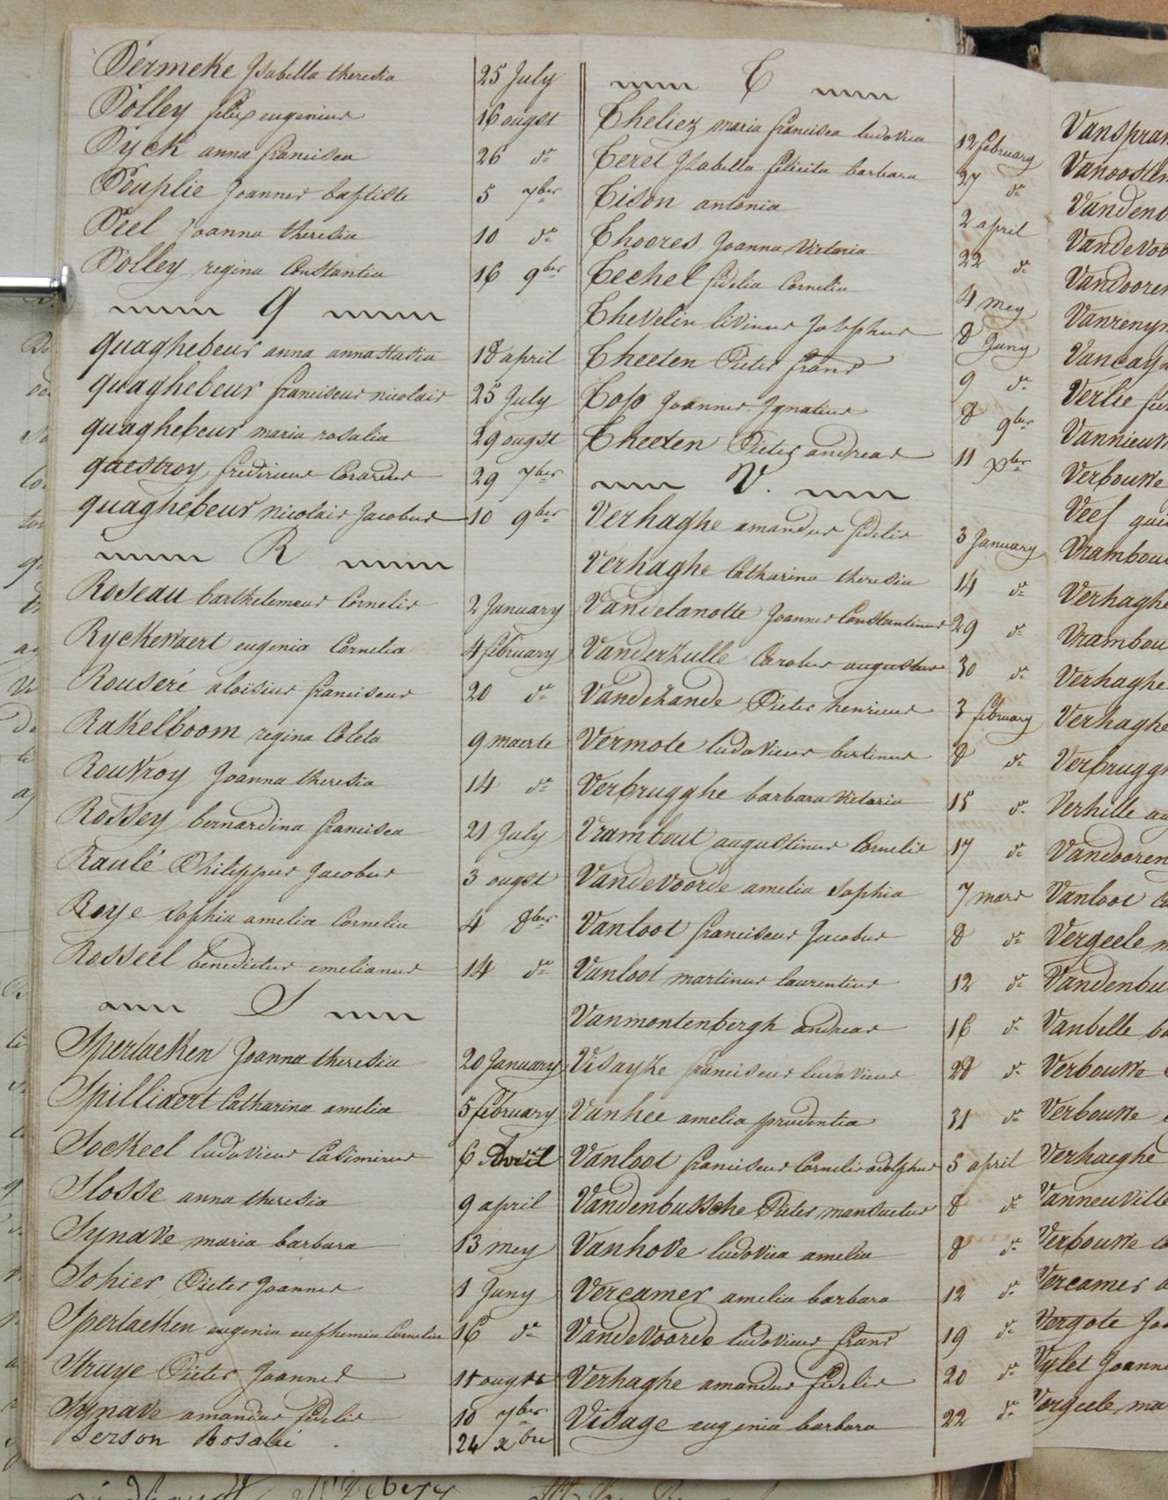 Dermeke Isabella theresia 25 July
Polley felix eugenius 16 ougst
Pyck anna francisca 26 do
Peuplie Joannes baptiste 5 7ber
Piel Joanna theresia 10 do
Polley regina Constantia 16 9ber
q
quaghebeur anna annastasia 18 april
quaghebeur franciscus nicolais 25 July
quaghebeur maria rosalia 29 ougst
quaghebeur nicolais Jacobus 10 9ber
R
Roseau barthelemeus Cornelis 2 January
Ryckewaert eugenia Cornelia 4 february
Rouseré aloisius franciscus 20 do
Rakelboom regina Coleta 9 maerte
Rouvroy Joanna theresia 14 do
Rossey bernardina francisca 21 July
Raulé Philippus Jacobus 3 ougst
Roye sophia amelia Cornelia 4 8ber
Rosseel benedictus emelianus 14 do
S
Sperlaeken Joanna theresia 20 January
Spilliaert Catharina amelia 5 february
Sockeel ludovicus Casimirus 6 Avril
Slosse anna theresia 9 april
Synave maria barbara 13 mey
Sohier Pieter Joannes 1 Juny
Sperlaeken eugenia euphemia Cornelia 16 do
Struye Pieter Joannes ougst
Synave amandus fidelis 10 7ber
Serson Rosalie 24 xbre
T
Theliez maria francisca ludovica 12 february
Teret Isabella felicita barbara 27 do
Tison antonia 2 april
Thoores Joanna Victoria 22 do
Techel fidelia Cornelia 4 mey
Thevelin livinus Josephus 8 Juny
Theeten Pieter frans 9 do
Top Joannes Ignatius 8 9ber
Theeten Pieter andreas 11 xber
V.
Verhaghe amandus fidelis 3 January
Verhaghe Catharina theresia 14 do
Vandelanotte Joannes Constantinus 29 do
Vanderzulle Carolus augustus 30 do
Vandezande Pieter henricus 3 february
Vermote ludovicus bertinus 8 do
Verbrugghe barbara Victoria 15 do
Vrambout augustinus Cornelis 17 do
Vandevoorde amelia sophia 7 mars
Vanloot franciscus Jacobus 8 do
Vanloot martinus laurentius 12 do
Vanmontenbergh andreas 16 do
Visayze franciscus ludovicus 28 do
Vanhee amelia prudentia 31 do
Vanloot franciscus Cornelis adolphus 5 april
Vandenbussche Pieter mansuetus 8 do
Vanhove ludovica amelia 8 do
Vercamer amelia barbara 12 do
Vandevoorde ludovicus frans 19 do
Verhaghe amandus fidelis 20 do
Visage eugenia barbara 22 do
Vanspran
Vanooste
Vandenb
Vandevoo
Vandooren
Vanreny
Vancay
Verlie
Vannieuw
Verbouwe
Veef
Vrambou
Verhaghe
Vrambou
Verhaghe
Verhaghe
Verbrugg
Verhille
Vandooren
Vanloot
Vergeele
Vandenbu
Vanbelle
Verbouwe
Verbouwe
Verhaeghe
Vanneuville
Verbouwe
Vercamer
Vergote
Vylet Joann
Vergeele ma